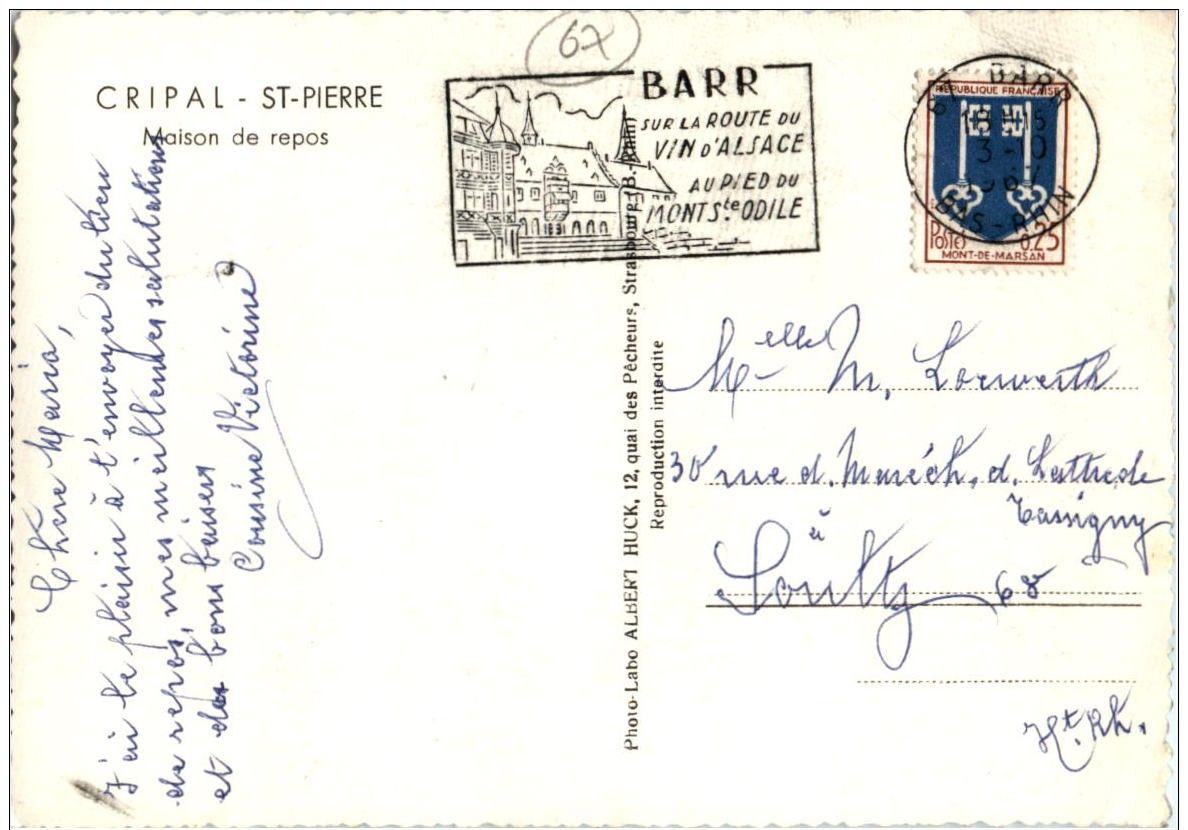 67
CRIPAL - ST-PIERRE
Maison de repos
BARR
SUR LA ROUTE DU
VIN D'ALSACE
AU PIED DU
MONT Ste ODILE
67 BARR
15
3-10
967
BAS-RHIN
RÉPUBLIQUE FRANÇAISE
POSTES
0,25
MONT-DE-MARSAN
Chère Maria,
J'ai le plaisir à t'envoyer du lieu
de repos, mes meilleures salutations
et des bons baisers
Cousine Victorine
Photo-Labo ALBERT HUCK, 12, quai des Pêcheurs, Strasbourg (B.-Rhin)
Reproduction interdite
Melle M. Loewerth
30 rue d. Maréch. d. Lattre de
Tassigny
à
Soultz 68
Ht. Rh.